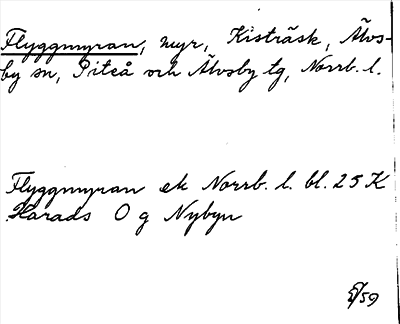 Flyggmyran, myr, Kisträsk, Älvs-
by sn, Piteå och Älvsby tg, Norrb. l.
Flyggmyran ek Norrb. l. bl. 25 K
Harads O g Nybyn
/59